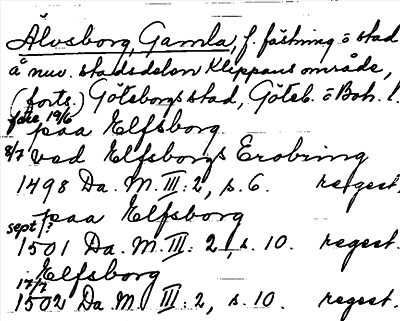 Älvsborg, Gamla, f. fästning o stad
å nuv. stadsdelen Klippans område,
(forts.) Göteborgs stad, Göteb. o Boh. l.
före 19/6 paa Elfsborg
8/7 ved Elfsborgs Erobring
1498 Da. M. III: 2, s. 6. regest.
paa Elfsborg
sept./?
1501 Da. M. III: 2, s. 10. regest.
Elfsborg
17/7
1502 Da. M. III: 2, s. 10. regest.